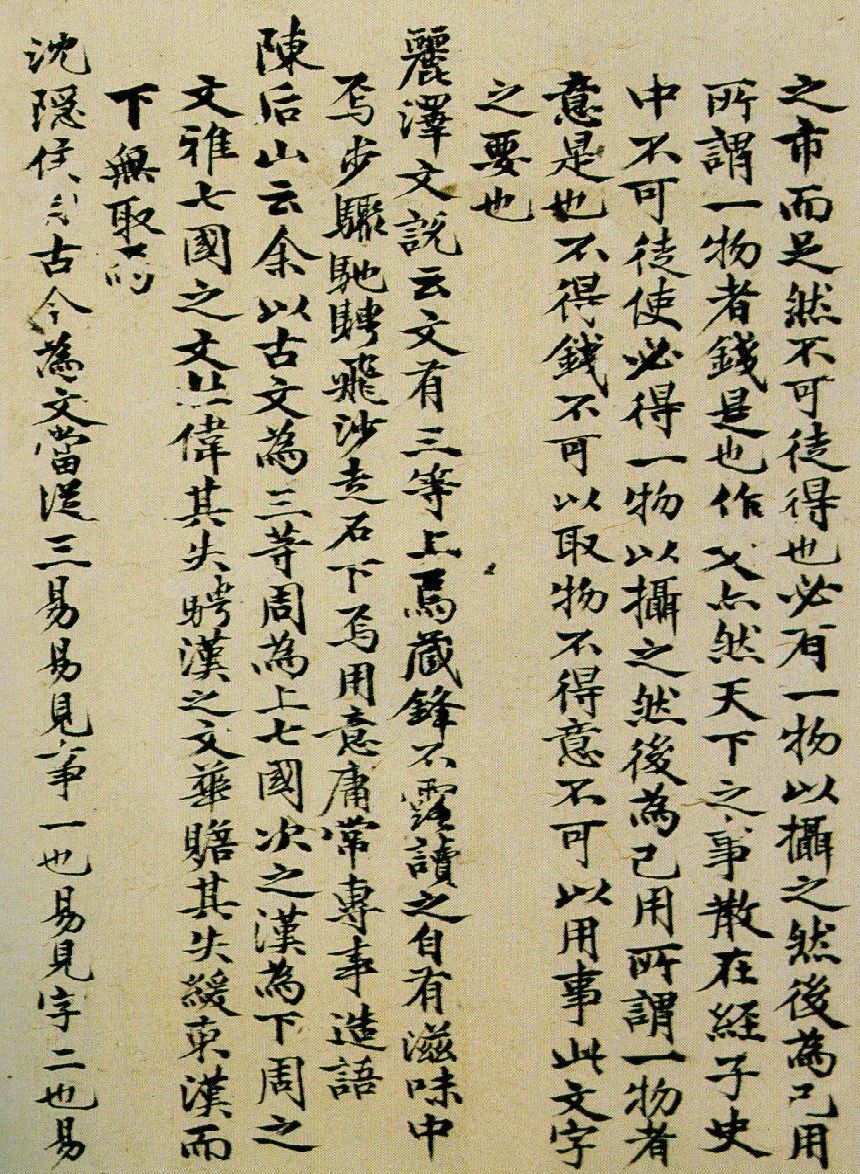 之市而足然不可徒得也必有一物以攝之然後為己用
所謂一物者錢是也作文亦然天下之事散在經子史
中不可徒使必得一物以攝之然後為己用所謂一物者
意是也不得錢不可以取物不得意不可以用事此文字
之要也
麗澤文說云文有三等上焉藏鋒不露讀之自有滋味中
焉步驟馳騁飛沙走石下焉用意庸常專事造語
陳后山云余以古文為三等周為上七國次之漢為下周之
文雅七國之文壯偉其失騁漢之文華贍其失緩東漢而
下無取焉
沈隱侯曰古今為文當從三易易見事一也易見字二也易